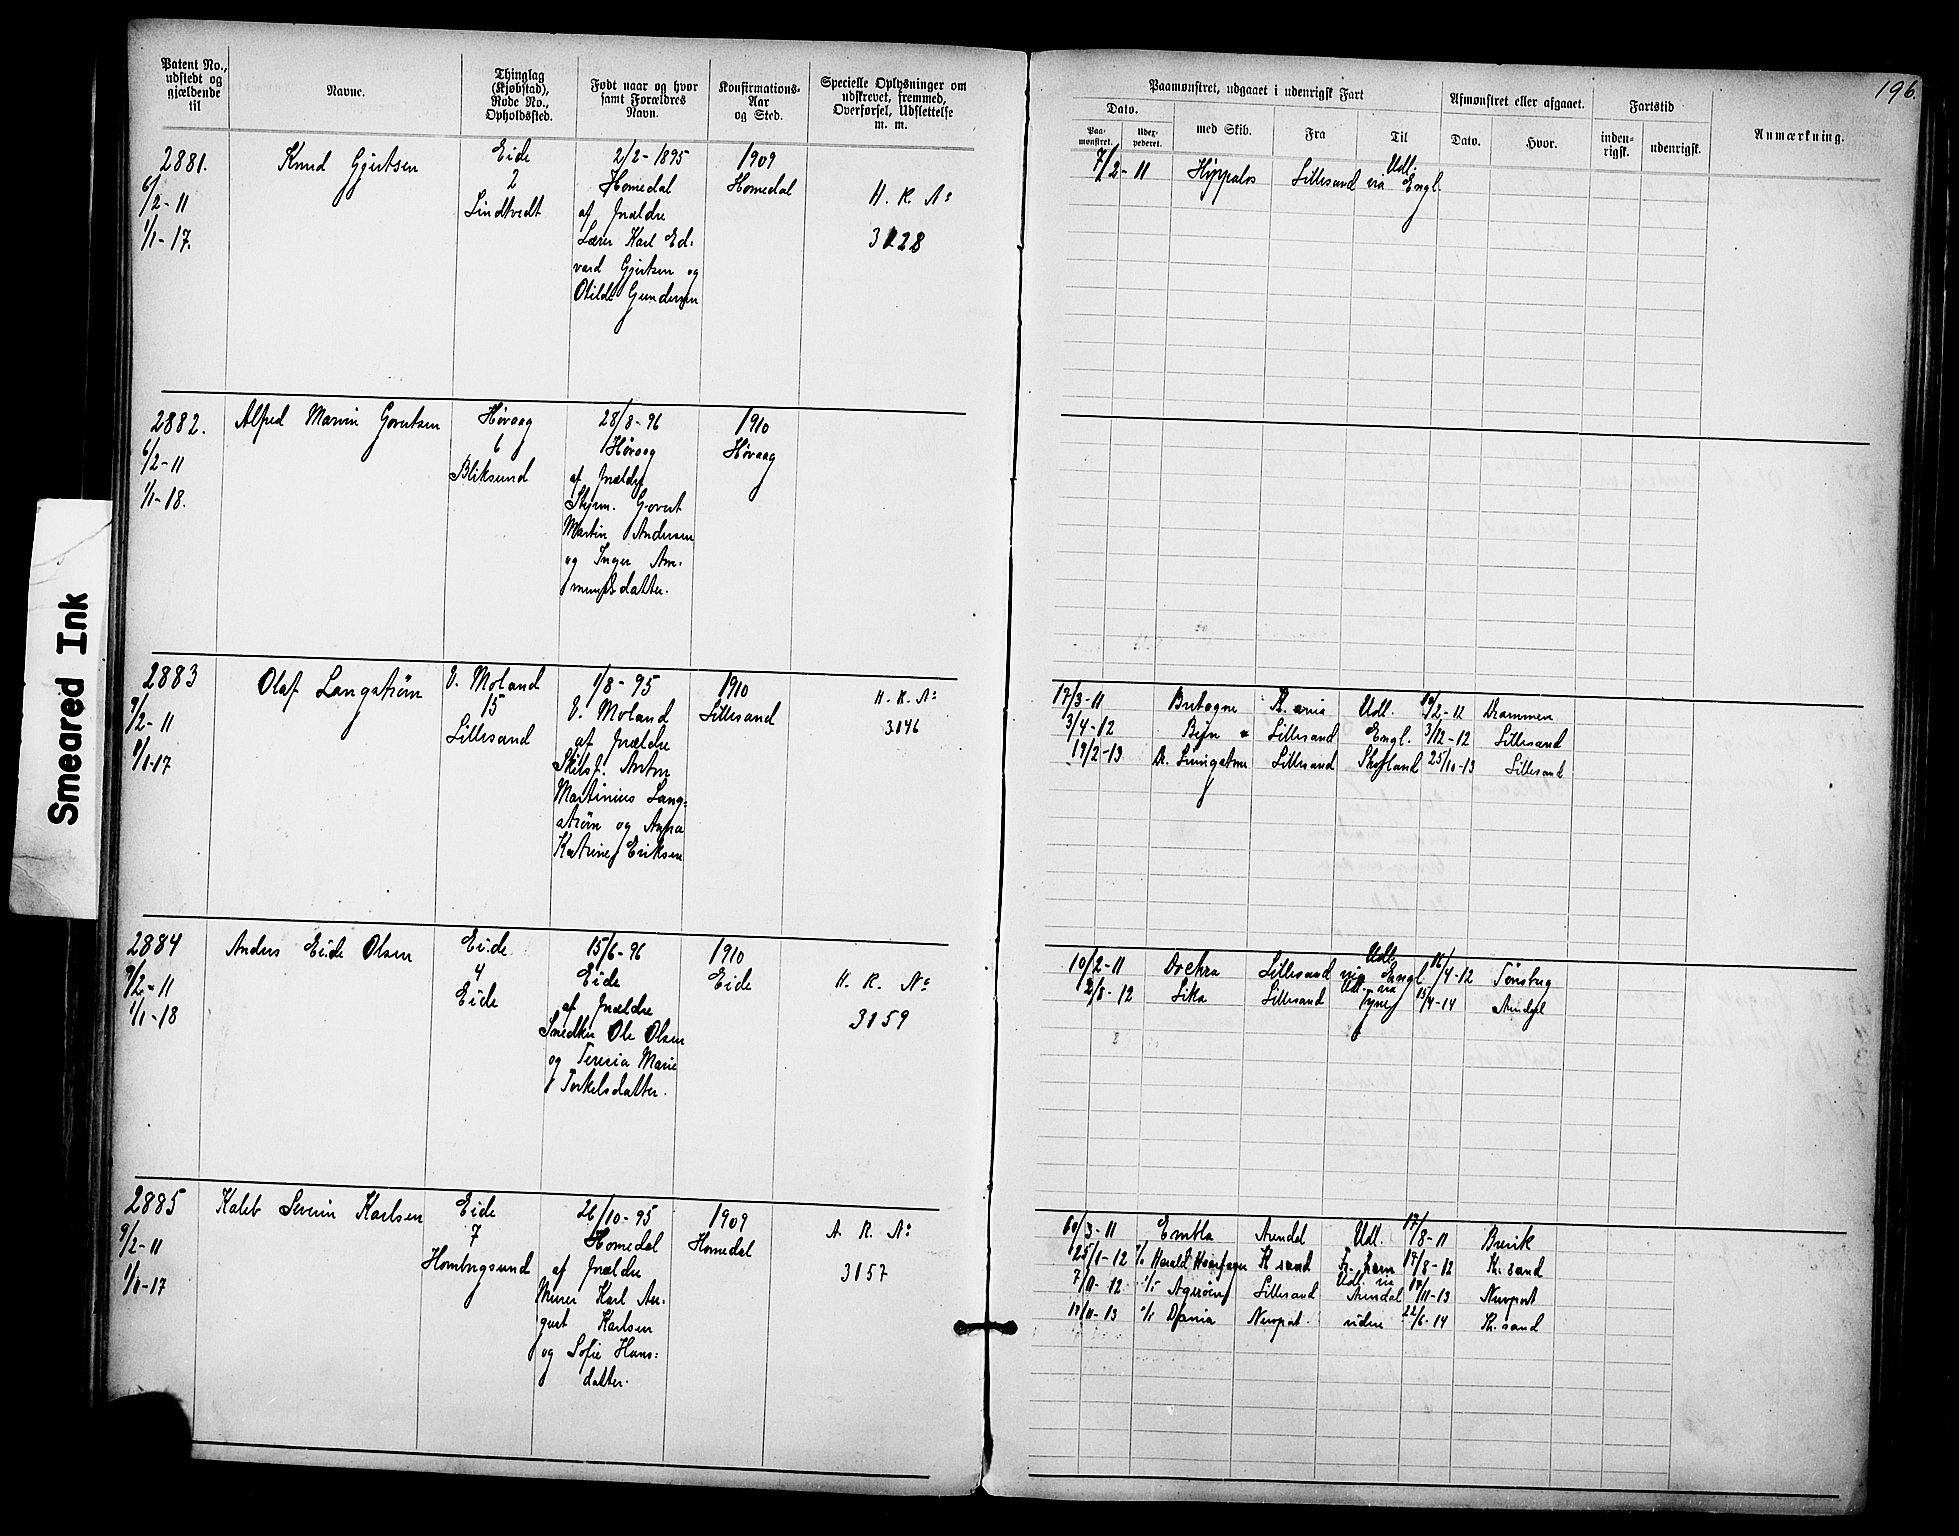 196.
Patent No., udstedt og gjældende til
Navne.
Thinglag (Kjøbstad), Rode No., Opholdssted.
Født naar og hvor samt Forældres Navn.
Konfirmations-Aar og Sted.
Specielle Oplysninger om udskrevet, fremmed, Overførsel, Udslettelse m. m.
Paamønstret, udgaaet i udenrigsk Fart
Dato.
Paa-mønstret.
Udex-pederet.
med Skib.
Fra
Til
Afmønstret eller afgaaet.
Dato.
Hvor.
Fartstid
inden-rigsk.
udenrigsk.
Anmærkning.
2881.
6/2-11
1/1-17.
Knud Gjertsen
Eide
2
Lindtvedt
2/2-1895
Homedal
af Forældre
Lærer Karl Ed-
vard Gjertsen og
Otilde Gundersen
1909
Homedal
H. R. No
3128
7/2-11 Hippalos Lillesand via Engl.
Udl.
2882.
6/2-11
1/1-18.
Alfred Marvin Govertsen
Høvaag
6
Bliksund
28/8-96
Høvaag
af Forældre
Styrm. Govert
Martin Andersen
og Inger
datter.
1910
Høvaag
2883
9/2-11
1/1-17
Olaf Langstrøm
V. Moland
15
Lillesand
1/8-95
V. Moland
af Forældre
Skibsf. Anton
Martinius Lang-
strøm og Anna
Katrine Eriksen
1910
Lillesand
H. R. No
3146
17/3-11 Bretagne Kr.ania Udl. 19/2-12 Drammen
3/4-12 Lillesand Engl. 3/12-12 Lillesand
19/2-13 Dr. Livingstone Lillesand Skotland 25/10-13 Lillesand
2884
9/2-11
1/1-18
Anders Eide Olsen
Eide
4
Eide
15/6-96
Eide
af Forældre
Snedker Ole Olsen
og Teresia Marie
Torkelsdatter.
1910
Eide
H. R. No
3159
10/2-11 Lillesand via Engl 16/4-12 Tønsberg
Udl.
2/8-12 Sika Lillesand Udl. via Tyne 15/4-14 Arendal
2885
9/2-11
1/1-17
Kaleb Severin Karlsen
Eide
7
Homborgsund
26/10-95
Homedal
af Forældre
Murer Karl Au-
gust Karlsen
og Sofie Hans-
datter.
1909
Homedal
A R. No
3157
/3-11 Embla Arendal Udl. 17/8-11 Brevik
25/1-12 Harald Haarfager Kr sand 17/8-12 Kr. sand
7/11-12 Agerøen Lillesand Udl. via Arendal 18/11-13 Newport
18/11-13 Dania Newport videre 22/6-14 Kr. sand
Smeared Ink